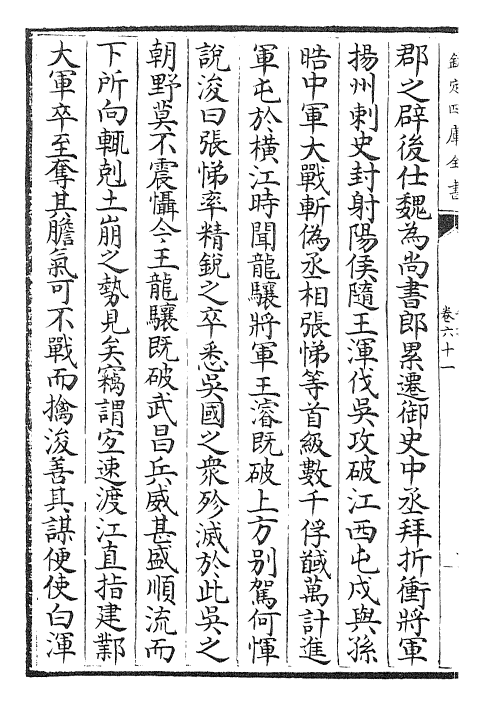 欽定四庫全書
卷六十一
郡之辟後仕魏為尚書郎累遷御史中丞拜折衝將軍
揚州刺史封射陽侯隨王渾伐吳攻破江西屯戍與孫
晧中軍大戰斬偽丞相張悌等首級數千俘馘萬計進
軍屯於橫江時聞龍驤將軍王濬既破上方別駕何惲
說浚曰張悌率精銳之卒悉吳國之眾殄滅於此吳之
朝野莫不震懾今王龍驤既破武昌兵威甚盛順流而
下所向輒剋土崩之勢見矣竊謂宜速渡江直指建鄴
大軍卒至奪其膽氣可不戰而擒浚善其謀便使白渾